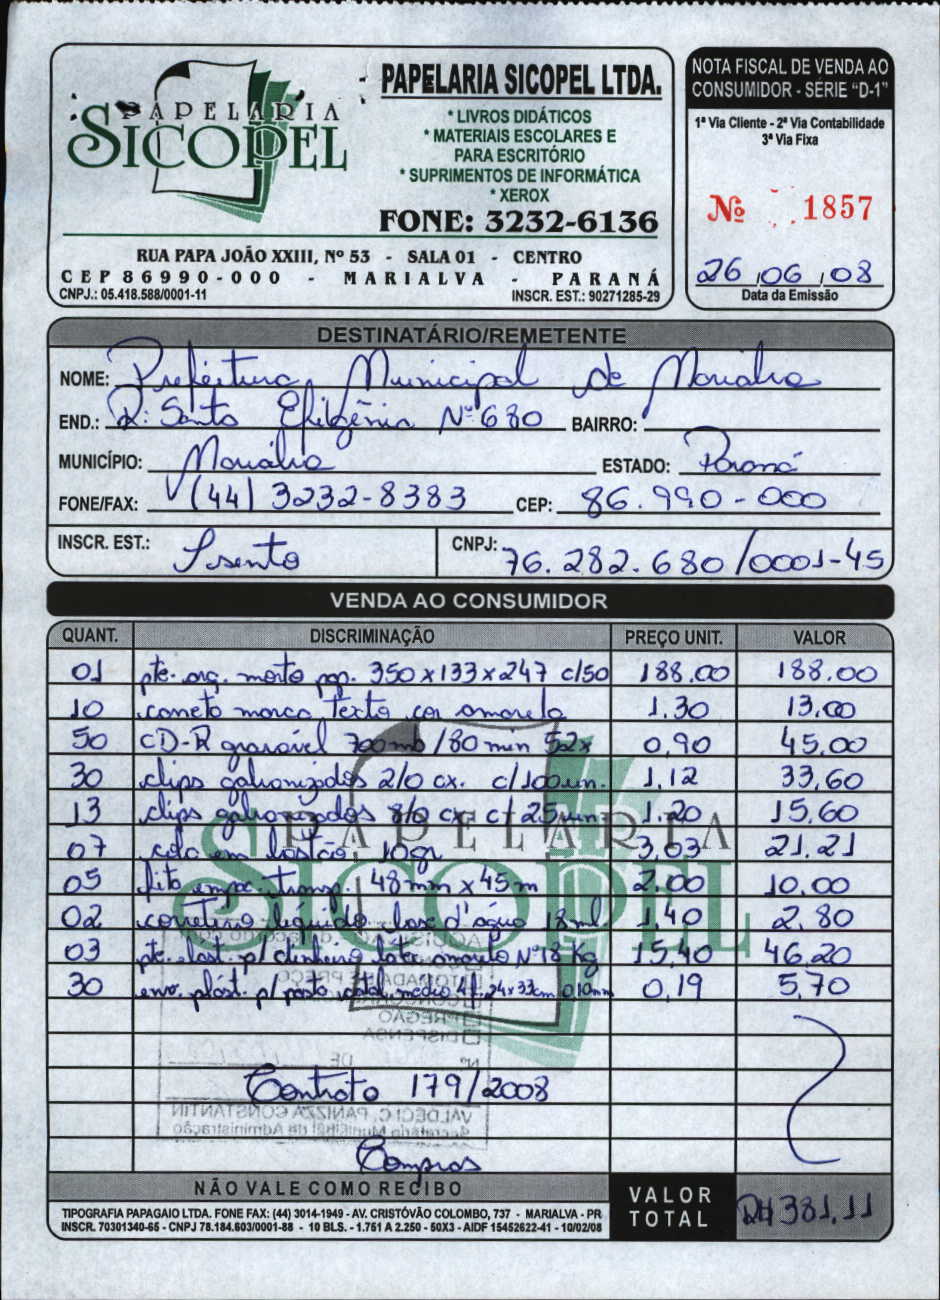 PAPELARIA
SICOPEL
PAPELARIA SICOPEL LTDA.
* LIVROS DIDÁTICOS
* MATERIAIS ESCOLARES E
PARA ESCRITÓRIO
* SUPRIMENTOS DE INFORMÁTICA
* XEROX
FONE: 3232-6136
RUA PAPA JOÃO XXIII, Nº 53 - SALA 01 - CENTRO
CEP 86990-000 - MARIALVA - PARANÁ
CNPJ.: 05.418.588/0001-11 INSCR. EST.: 90271285-29
NOTA FISCAL DE VENDA AO
CONSUMIDOR - SÉRIE "D-1"
1ª Via Cliente - 2ª Via Contabilidade
3ª Via Fixa
Nº 1857
26/06/08
Data da Emissão
DESTINATÁRIO/REMETENTE
NOME: Prefeitura Municipal de Marialva
END.: R: Santa Efigênia Nº 680 BAIRRO:
MUNICÍPIO: Marialva ESTADO: Paraná
FONE/FAX: (44) 3232-8383 CEP: 86.990-000
INSCR. EST.: Isento CNPJ: 76.282.680/0001-45
VENDA AO CONSUMIDOR
QUANT. DISCRIMINAÇÃO PREÇO UNIT. VALOR
01 pte. arq. morto pap. 350x133x247 c/50 188.00 188.00
10 caneta marca texto cor amarela 1.30 13,00
50 CD-R gravável 700mb/80 min 52x 0,90 45,00
30 clips galvanizados 2/0 cx. c/100un. 1,12 33,60
13 clips galvanizados 8/0 cx. c/ 25un. 1.20 15,60
07 cola em bastão, 10gr 3,03 21.21
05 fita empc. transp. 48mm x 45m 2.00 10.00
02 corretivo líquido base d'água 18ml 1,40 2.80
03 pte. elast. p/ dinheiro latex amarelo Nº 18 Kg 15,40 46,20
30 env. plást. p/ pasta médio 4f. 24x33cm 0,10mm 0,19 5,70
PAPELARIA
SICOPEL
PREGÃO
DISPENSA
Nº DE
Contrato 179/2008
VALDECI C. PANIZZA CONSTANTIN
Secretária Municipal de Administração
Compras
NÃO VALE COMO RECIBO
TIPOGRAFIA PAPAGAIO LTDA. FONE FAX: (44) 3014-1949 - AV. CRISTÓVÃO COLOMBO, 737 - MARIALVA - PR
INSCR. 70301340-65 - CNPJ 78.184.603/0001-88 - 10 BLS. - 1.751 A 2.250 - 50X3 - AIDF 15452622-41 - 10/02/08
VALOR
TOTAL
R$ 381,11